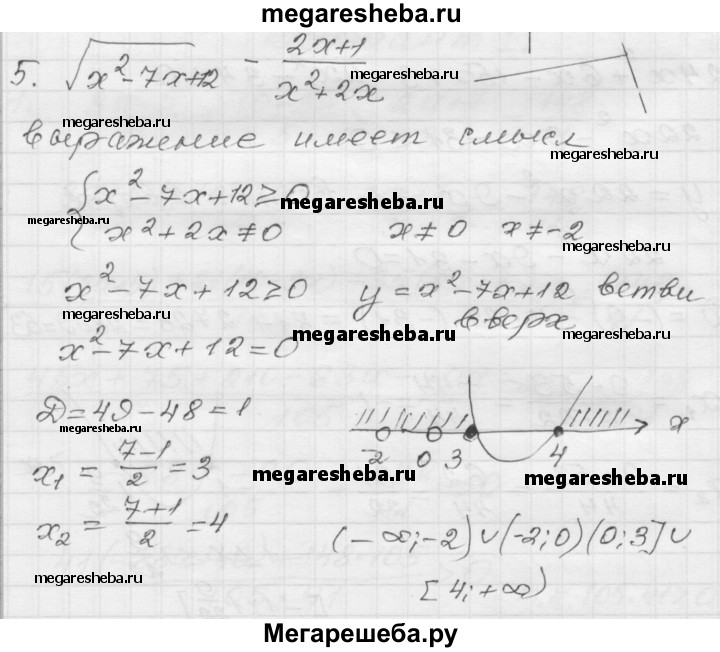 megaresheba.ru
5. √(x² - 7x + 12) - (2x+1)/(x² + 2x)
megaresheba.ru
megaresheba.ru
выражение имеет смысл
megaresheba.ru
{ x² - 7x + 12 ≥ 0
megaresheba.ru
megaresheba.ru
x² + 2x ≠ 0 x ≠ 0 x ≠ -2
megaresheba.ru
x² - 7x + 12 ≥ 0 y = x² - 7x + 12 ветви
вверх
megaresheba.ru
megaresheba.ru
megaresheba.ru
x² - 7x + 12 = 0
D = 49 - 48 = 1
megaresheba.ru
x
-2 0 3 4
x₁ = (7-1)/2 = 3
megaresheba.ru
megaresheba.ru
x₂ = (7+1)/2 = 4
(-∞; -2) ∪ (-2; 0) (0; 3] ∪
[4; +∞)
megaresheba.ru
megaresheba.ru
Мегарешеба.ру